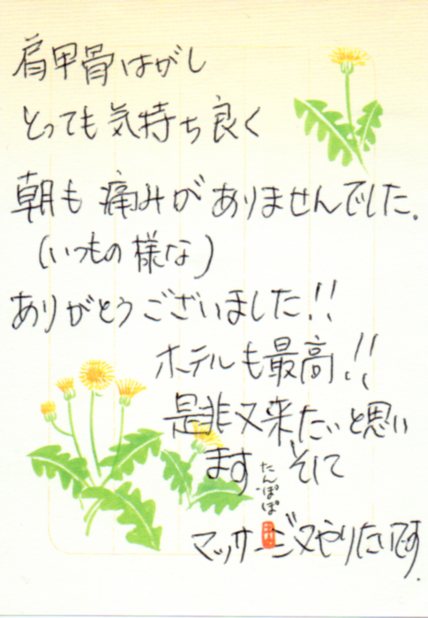 肩甲骨はがし
とっても気持ち良く
朝も痛みがありませんでした.
(いつもの様な)
ありがとうございました!!
ホテルも最高!!
是非又来たいと思い
ます そして
たんぽぽ
マッサージ又やりたいです.